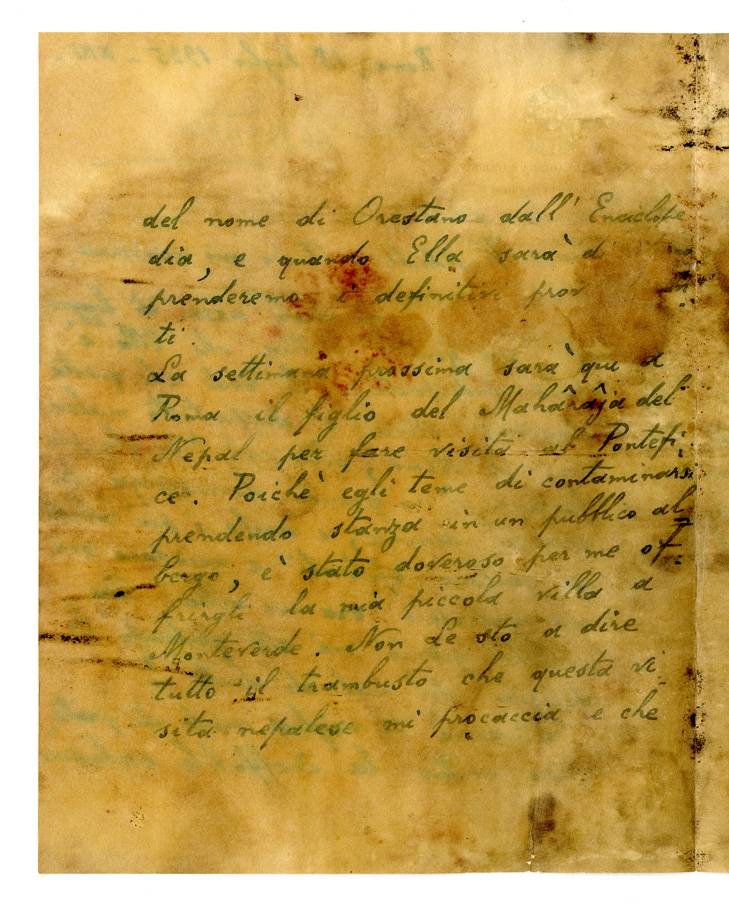 del nome di Orestano dall' Enciclope
dia, e quando Ella sarà di
prenderemo i definitivi prov
ti.
La settimana prossima sarà qui a
Roma il figlio del Mahârâja del
Nepal per fare visita al Pontefi-
ce. Poichè egli teme di contaminarsi
prendendo stanza in un pubblico al
bergo, è stato doveroso per me of-
frirgli la mia piccola villa a
Monteverde. Non Le sto a dire
tutto il trambusto che questa vi-
sita nepalese mi procaccia e che